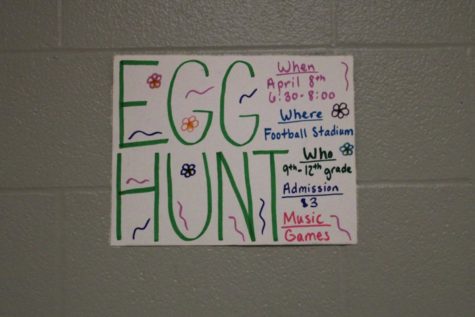 EGG
HUNT
When
April 8th
6:30-8:00
Where
Football Stadium
Who
9th-12th grade
Admission
$3
Music
Games